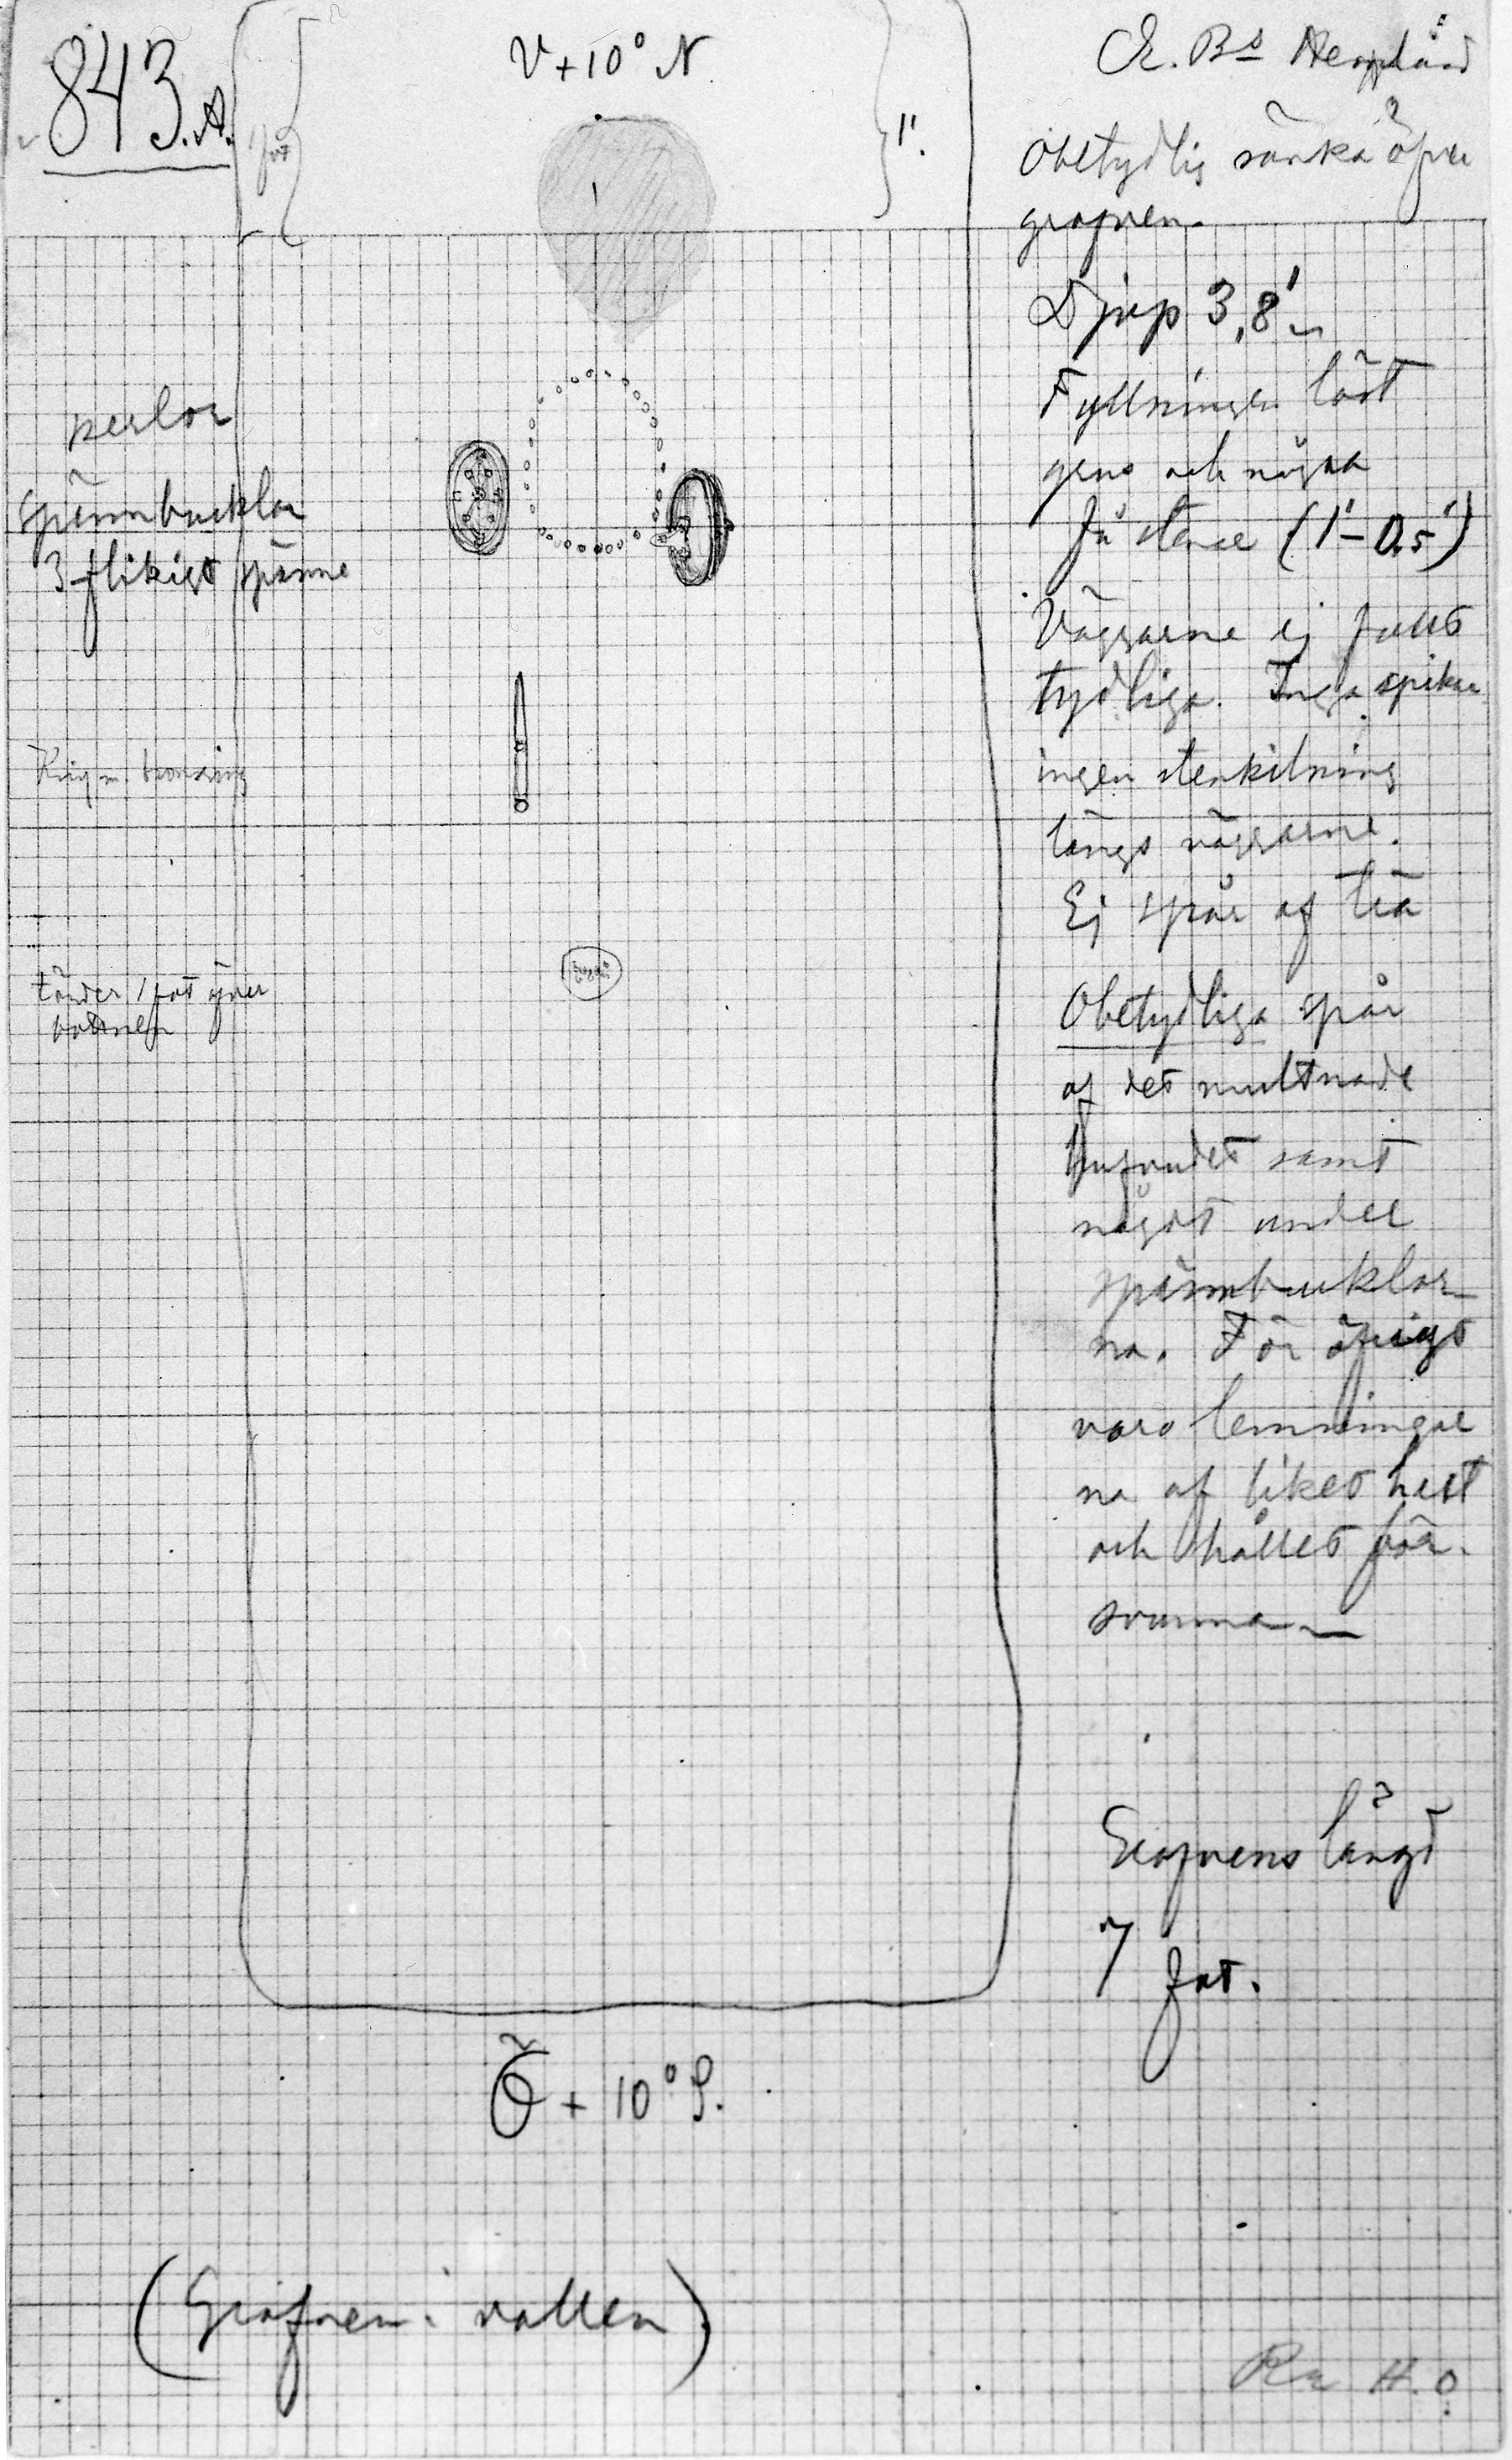 843.A.
1 fot
V + 10° N
1'.
perlor
spännbucklor
3-flikigt spänne
Kniv m. bronsring
tänder 1 fot över
bottnen
Ö + 10° S.
(Grafven i vallen)
E. Bs
Obetydlig sänka öfver
grafven.
Djup 3,8'
Fyllningen löst
grus och några
få stenar (1'-0,5')
Väggarne ej fullt
tydliga. Inga spikar
ingen stenkilning
längs väggarne.
Ej spår af trä
Obetydliga spår
af det multnade
hufvudet samt
något under
spännbucklor
na. För öfrigt
voro lemningar
na af liket helt
och hållet för-
svunna
Grafvens längd
7 fot.